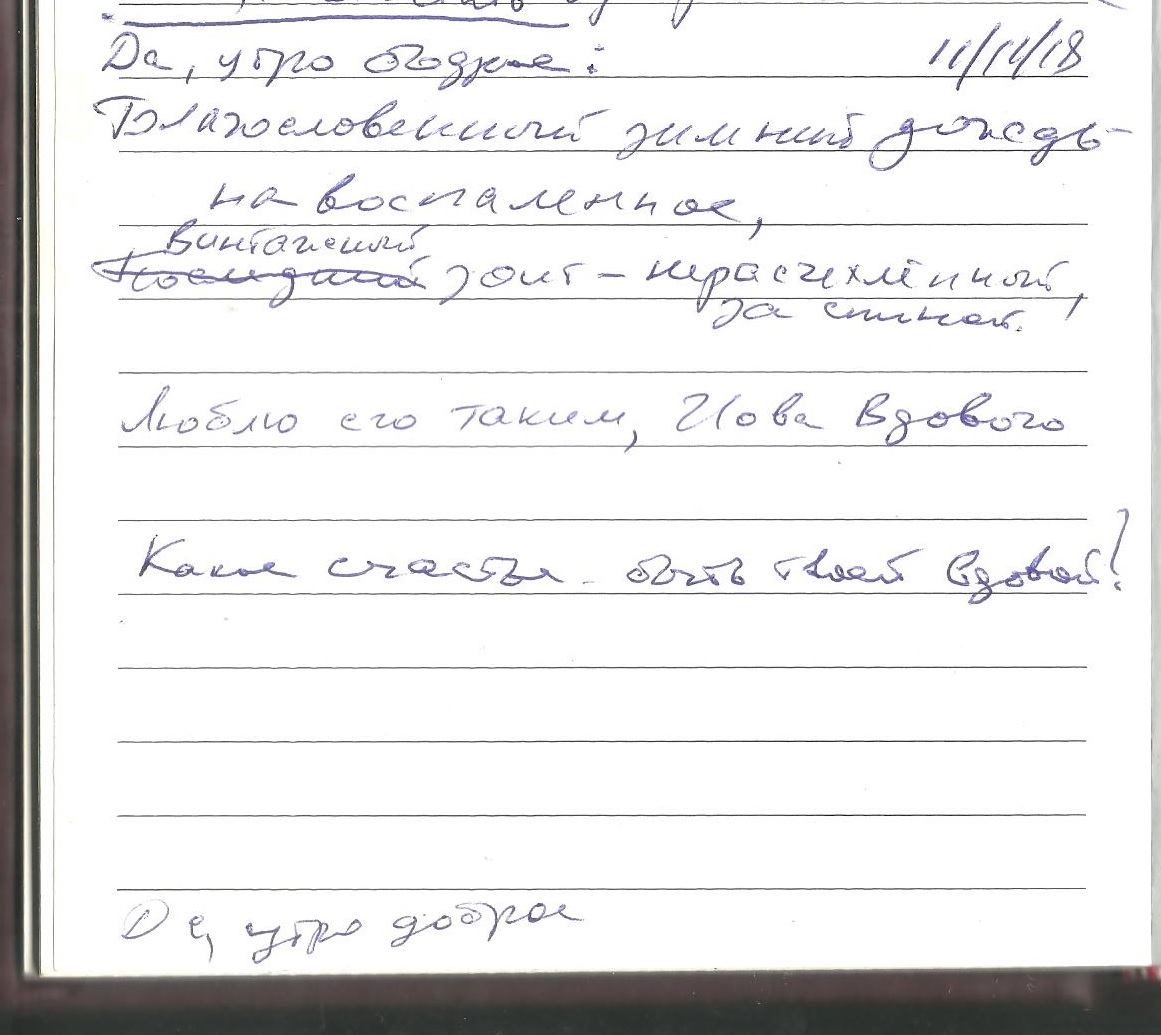 Да, утро
11/11/18
Благословенный зимний дождь
на воспаленное,
Винтажный
Последний зонт – нерасчехлённый,
за спиной.
Люблю его таким, Иова Вдового
Какое счастье – быть твоей вдовой!
Да, утро доброе